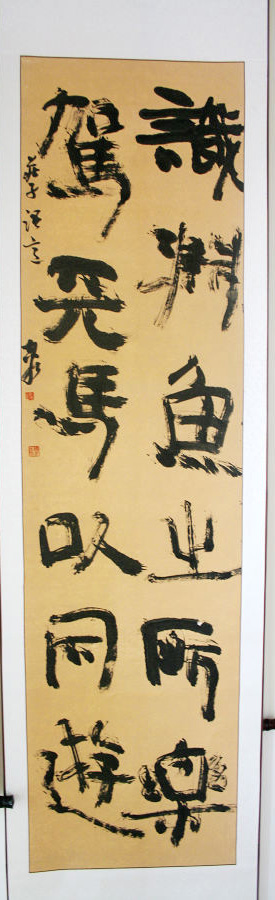 識淵魚之所樂
駕天馬以同遊
莊子語意